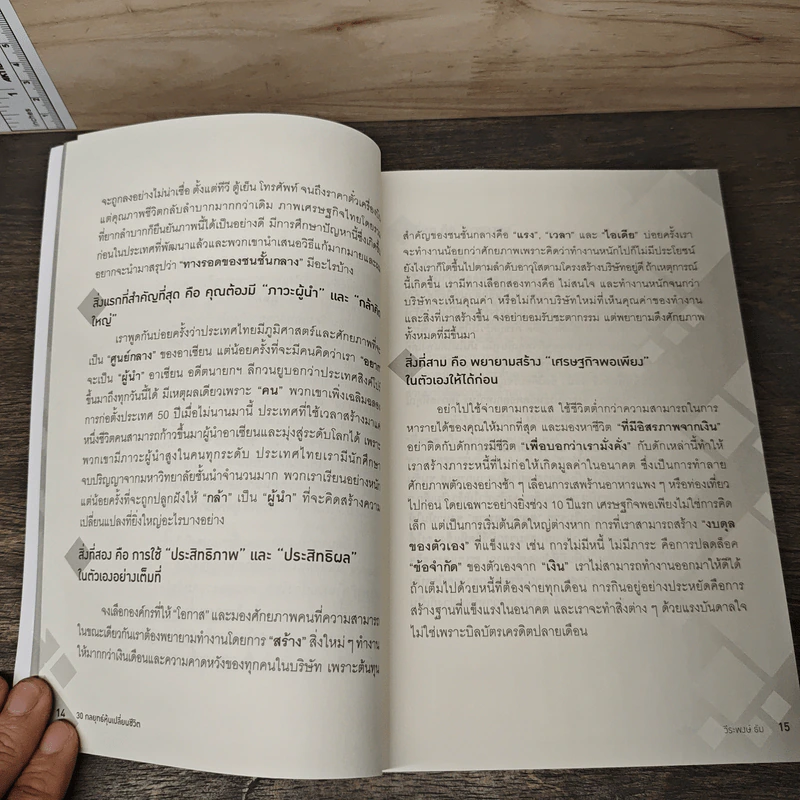 จะถูกลงอย่างไม่น่าเชื่อ ตั้งแต่ทีวี ตู้เย็น โทรศัพท์ จนถึงราคาตั๋วเครื่องบิน
แต่คุณภาพชีวิตกลับลำบากมากกว่าเดิม ภาพเศรษฐกิจไทยโดยรวม
ที่ยากลำบากก็ยืนยันภาพนี้ได้เป็นอย่างดี มีการศึกษาปัญหานี้ซึ่งเกิดขึ้น
ก่อนในประเทศที่พัฒนาแล้วและพวกเขานำเสนอวิธีแก้มากมายและผม
อยากจะนำมาสรุปว่า "ทางรอดของชนชั้นกลาง" มีอะไรบ้าง
สิ่งแรกที่สำคัญที่สุด คือ คุณต้องมี "ภาวะผู้นำ" และ "กล้าคิด
ใหญ่"
เราพูดกันบ่อยครั้งว่าประเทศไทยมีภูมิศาสตร์และศักยภาพที่จะ
เป็น "ศูนย์กลาง" ของอาเซียน แต่น้อยครั้งที่จะมีคนคิดว่าเรา "อยาก"
จะเป็น "ผู้นำ" อาเซียน อดีตนายกฯ ลีกวนยูบอกว่าประเทศสิงคโปร์
ขึ้นมาถึงทุกวันนี้ได้ มีเหตุผลเดียวเพราะ "คน" พวกเขาเพิ่งเฉลิมฉลอง
การก่อตั้งประเทศ 50 ปีเมื่อไม่นานมานี้ ประเทศที่ใช้เวลาสร้างมาแค่
หนึ่งชีวิตคนสามารถก้าวขึ้นมาผู้นำอาเซียนและมุ่งสู่ระดับโลกได้ เพราะ
พวกเขามีภาวะผู้นำสูงในคนทุกระดับ ประเทศไทยเรามีนักศึกษา
จบปริญญาจากมหาวิทยาลัยชั้นนำจำนวนมาก พวกเราเรียนอย่างหนัก
แต่น้อยครั้งที่จะถูกปลูกฝังให้ "กล้า" เป็น "ผู้นำ" ที่จะคิดสร้างความ
เปลี่ยนแปลงที่ยิ่งใหญ่อะไรบางอย่าง
สิ่งที่สอง คือ การใช้ "ประสิทธิภาพ" และ "ประสิทธิผล"
ในตัวเองอย่างเต็มที่
จงเลือกองค์กรที่ให้ "โอกาส" และมองศักยภาพคนที่ความสามารถ
ในขณะเดียวกันเราต้องพยายามทำงานโดยการ "สร้าง" สิ่งใหม่ ๆ ทำงาน
ให้มากกว่าเงินเดือนและความคาดหวังของทุกคนในบริษัท เพราะต้นทุน
14 30 กลยุทธ์หุ้นเปลี่ยนชีวิต
สำคัญของชนชั้นกลางคือ "แรง", "เวลา" และ "ไอเดีย" บ่อยครั้งเรา
จะทำงานน้อยกว่าศักยภาพเพราะคิดว่าทำงานหนักไปก็ไม่มีประโยชน์
ยังไงเราก็โตขึ้นไปตามลำดับอาวุโสตามโครงสร้างบริษัทอยู่ดี ถ้าเหตุการณ์
นี้เกิดขึ้น เรามีทางเลือกสองทางคือ ไม่สนใจ และทำงานหนักจนกว่า
บริษัทจะเห็นคุณค่า หรือไม่ก็หาบริษัทใหม่ที่เห็นคุณค่าของการทำงาน
และสิ่งที่เราสร้างขึ้น จงอย่ายอมรับชะตากรรม แต่พยายามดึงศักยภาพ
ทั้งหมดที่มีขึ้นมา
สิ่งที่สาม คือ พยายามสร้าง "เศรษฐกิจพอเพียง"
ในตัวเองให้ได้ก่อน
อย่าไปใช้จ่ายตามกระแส ใช้ชีวิตต่ำกว่าความสามารถในการ
หารายได้ของคุณให้มากที่สุด และมองหาชีวิต "ที่มีอิสรภาพจากเงิน"
อย่าติดกับดักการมีชีวิต "เพื่อบอกว่าเรามั่งคั่ง" กับดักเหล่านี้ทำให้
เราสร้างภาระหนี้ที่ไม่ก่อให้เกิดมูลค่าในอนาคต ซึ่งเป็นการทำลาย
ศักยภาพตัวเองอย่างช้า ๆ เลื่อนการเสพร้านอาหารแพง ๆ หรือท่องเที่ยว
ไปก่อน โดยเฉพาะอย่างยิ่งช่วง 10 ปีแรก เศรษฐกิจพอเพียงไม่ใช่การคิด
เล็ก แต่เป็นการเริ่มต้นคิดใหญ่ต่างหาก การที่เราสามารถสร้าง "งบดุล
ของตัวเอง" ที่แข็งแรง เช่น การไม่มีหนี้ ไม่มีภาระ คือการปลดล็อค
"ข้อจำกัด" ของตัวเองจาก "เงิน" เราไม่สามารถทำงานออกมาให้ดีได้
ถ้าเต็มไปด้วยหนี้ที่ต้องจ่ายทุกเดือน การกินอยู่อย่างประหยัดคือการ
สร้างฐานที่แข็งแรงในอนาคต และเราจะทำสิ่งต่าง ๆ ด้วยแรงบันดาลใจ
ไม่ใช่เพราะบิลบัตรเครดิตปลายเดือน
วีระพงษ์ ธัม 15